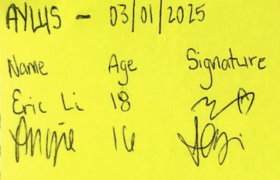 AYLUS - 03/01/2025
Name Age Signature
Eric Li 18
Angie 16